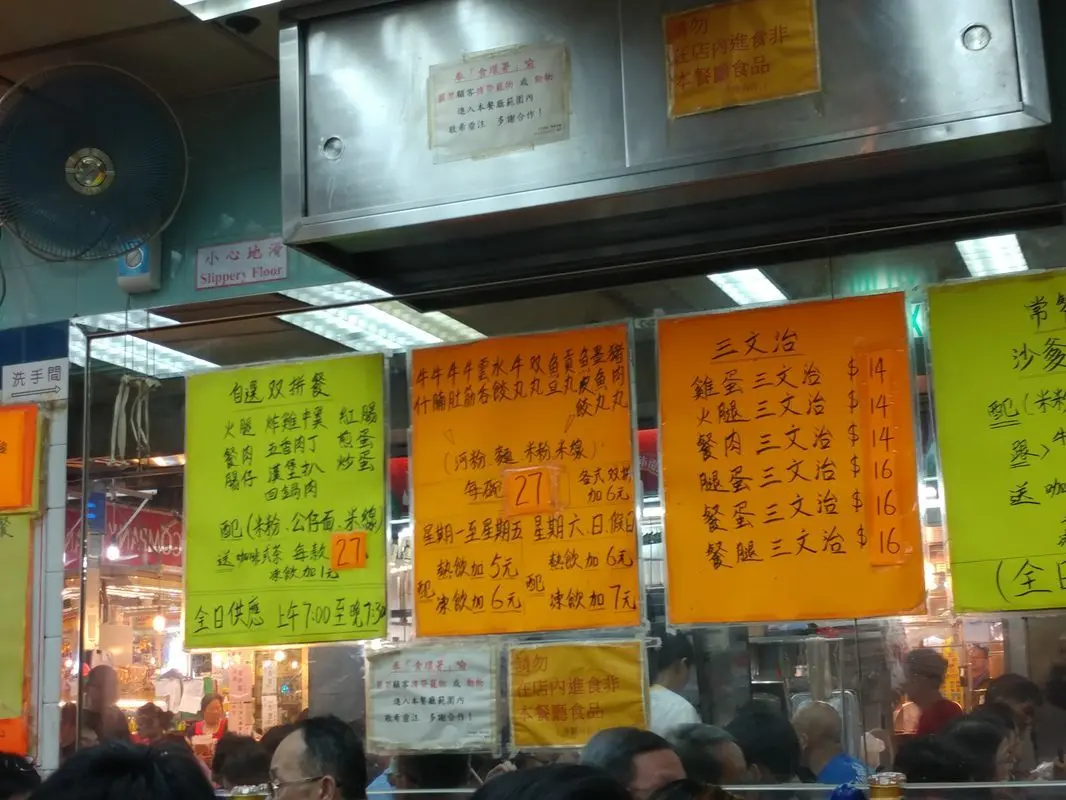 奉「食環署」喻
嚴禁顧客携帶寵物 或 動物
進入本餐廳範圍內
敬希垂注 多謝合作!
請勿
在店內進食非
本餐廳食品
小心地滑
Slippery Floor
洗手間
自選 双拼餐
火腿 炸雞中翼 紅腸
餐肉 五香肉丁 煎蛋
腸仔 漢堡扒 炒蛋
回鍋肉
配(米粉.公仔面.米線)
送咖啡或茶 每款 27
凍飲加1元
全日供應 上午7:00至晚7:30
牛牛牛牛雲水牛双魚貢魚墨豬
什腩肚筋吞餃丸丸旦丸皮魚肉
餃丸丸
(河粉.麵 米粉米線)
每碗 27 各式双拼
加6元
星期一至星期五 星期六.日.假日
配 熱飲加5元 配 熱飲加6元
凍飲加6元 凍飲加7元
三文治
雞蛋三文治 $14
火腿三文治 $14
餐肉三文治 $14
腿蛋三文治 $16
餐蛋三文治 $16
餐腿三文治 $16
常
沙爹
配(米粉
送 咖
(全日
奉「食環署」喻
嚴禁顧客携帶寵物 或 動物
進入本餐廳範圍內
敬希垂注 多謝合作!
請勿
在店內進食非
本餐廳食品